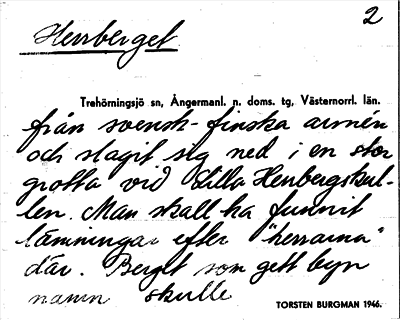 Herrberget
2
Trehörningsjö sn, Ångermanl. n. doms. tg, Västernorrl. län.
från svensk-finska armén
och slagit sig ned i en stor
grotta vid Lilla Herrbergskul-
len. Man skall ha funnit
lämningar efter "herrarna"
där. Berget som gett byn
namn skulle
TORSTEN BURGMAN 1946.